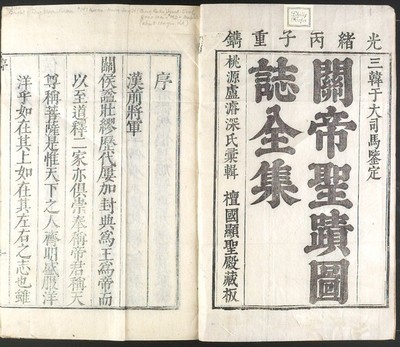 光緒丙子重鐫
三韓于大司馬鑒定
關帝聖蹟圖
誌全集
桃源盧湛深氏彙輯 檀國顯聖殿藏板
序
漢前將軍
關侯諡壯繆歷代屢加封典為王為帝而
以至道釋二家亦俱崇奉稱帝君稱天
尊稱菩薩是惟天下之人齋明盛服洋
洋乎如在其上如在其左右之志也雖
序